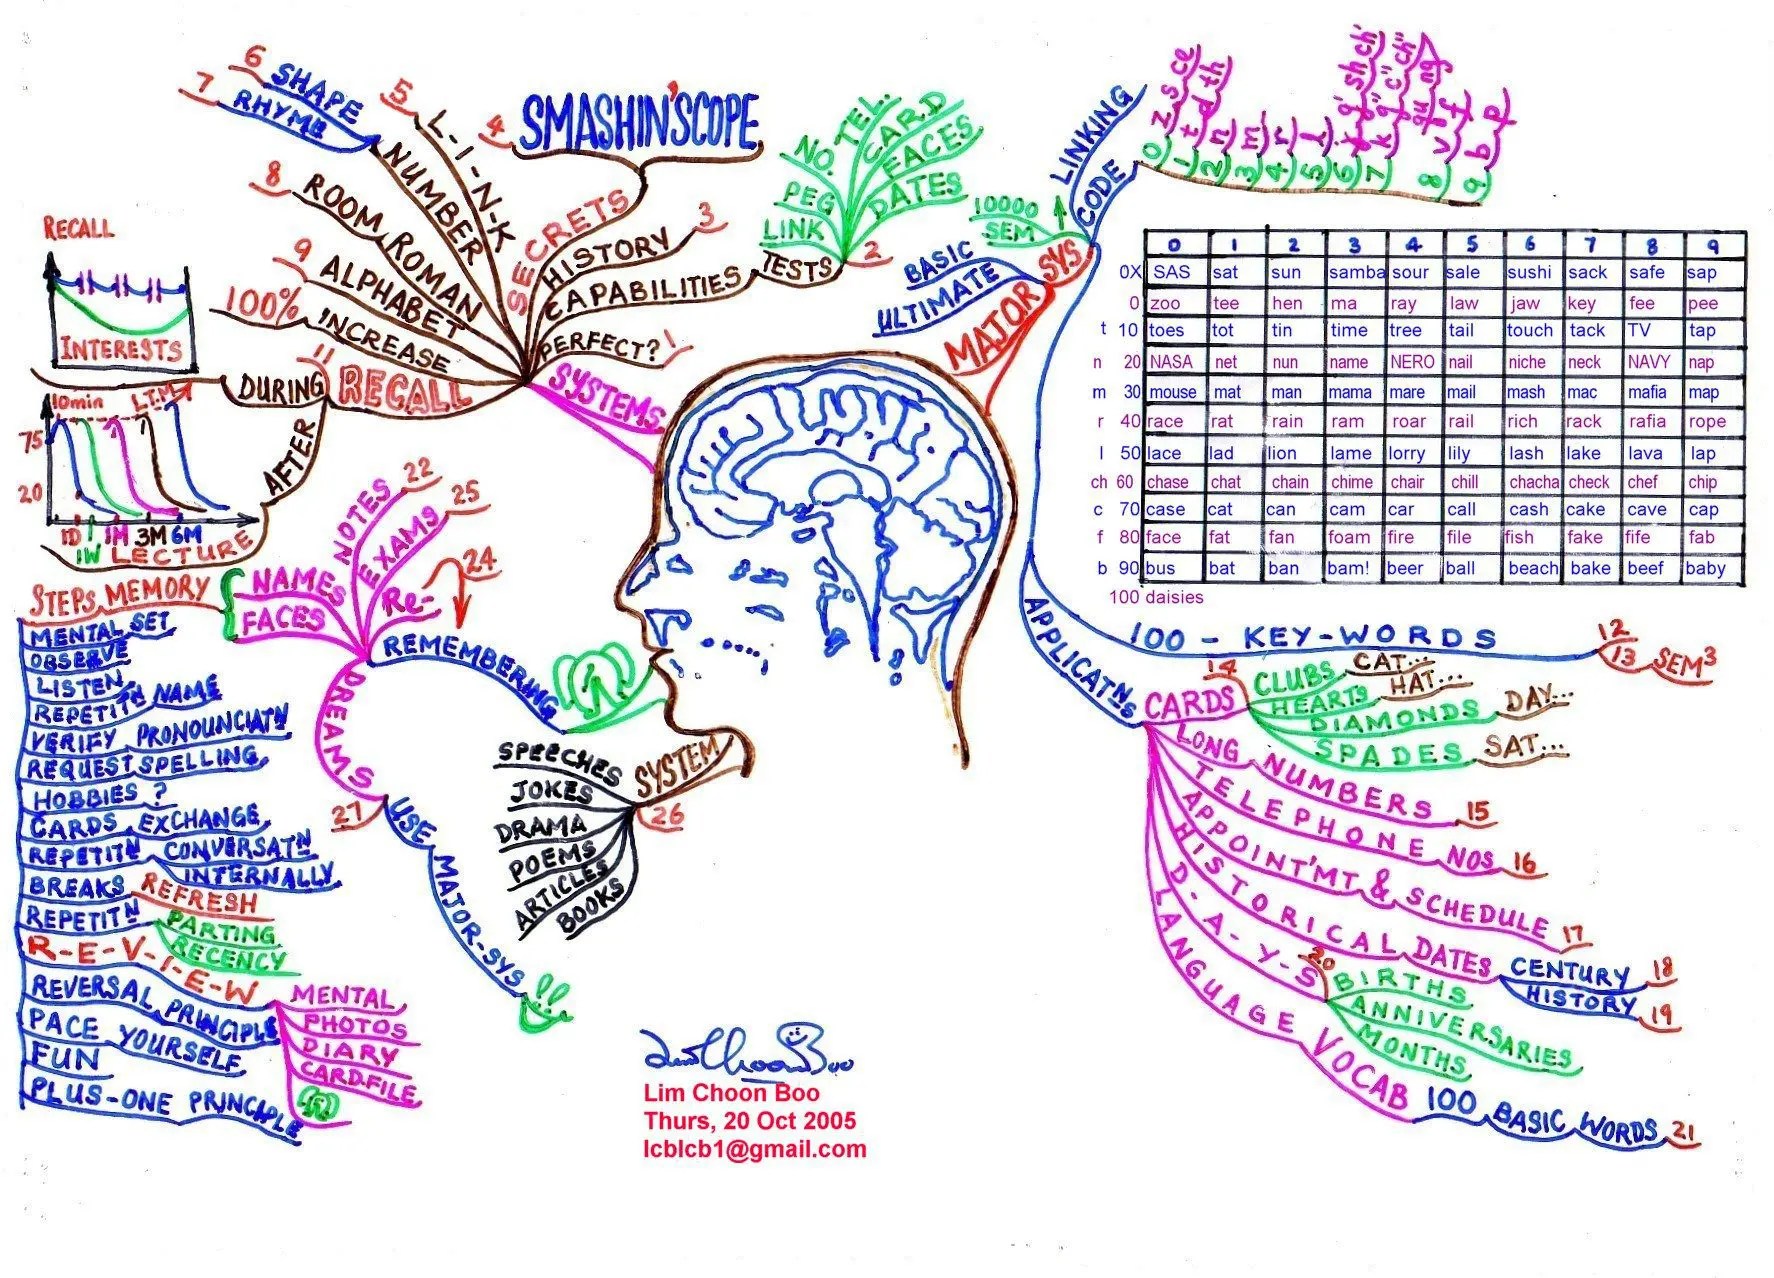 6 SHAPE
7 RHYME
NUMBER
5 L-I-N-K
4 SMASHIN'SCOPE
SECRETS
HISTORY 3
CAPABILITIES
TESTS 2
LINK
PEG
NO.
TEL.
CARD
FACES
DATES
PERFECT? 1
8 ROOM ROMAN
9 ALPHABET
100% INCREASE
11 RECALL
SYSTEMS
DURING
AFTER
RECALL
INTERESTS
10min L.T.M
75
20
1D 1W 1M 3M 6M
LECTURE
10000
SEM
BASIC
ULTIMATE
MAJOR SYS
LINKING
CODE
0) z, s, ce
1) t d th
2) n
3) m
4) r
5) l
6) j g' sh ch'
7) k g" c" ch"
qu ng
8) v f
9) b p
0 1 2 3 4 5 6 7 8 9
0X SAS sat sun samba sour sale sushi sack safe sap
0 zoo tee hen ma ray law jaw key fee pee
t 10 toes tot tin time tree tail touch tack TV tap
n 20 NASA net nun name NERO nail niche neck NAVY nap
m 30 mouse mat man mama mare mail mash mac mafia map
r 40 race rat rain ram roar rail rich rack rafia rope
l 50 lace lad lion lame lorry lily lash lake lava lap
ch 60 chase chat chain chime chair chill chacha check chef chip
c 70 case cat can cam car call cash cake cave cap
f 80 face fat fan foam fire file fish fake fife fab
b 90 bus bat ban bam! beer ball beach bake beef baby
100 daisies
100 - KEY-WORDS 12
13 SEM³
APPLICATNS
14 CARDS
CLUBS CAT...
HEARTS HAT...
DIAMONDS DAY...
SPADES SAT...
LONG NUMBERS 15
TELEPHONE NOS 16
APPOINT'MT & SCHEDULE 17
HISTORICAL DATES
CENTURY 18
HISTORY 19
D-A-Y-S 20
BIRTHS
ANNIVERSARIES
MONTHS
LANGUAGE VOCAB 100 BASIC WORDS 21
NOTES 22
EXAMS 25
Re- 24
NAMES
FACES
REMEMBERING
DREAMS
27
USE MAJOR-SYS
SYSTEM
26
SPEECHES
JOKES
DRAMA
POEMS
ARTICLES
BOOKS
STEPS MEMORY
MENTAL SET
OBSERVE
LISTEN
REPETITN NAME
VERIFY PRONOUNCIATN
REQUEST SPELLING
HOBBIES ?
CARDS EXCHANGE
REPETITN CONVERSATN
INTERNALLY
BREAKS REFRESH
REPETITN PARTING
RECENCY
R-E-V-I-E-W
MENTAL
PHOTOS
DIARY
CARD-FILE
REVERSAL PRINCIPLE
PACE YOURSELF
FUN
PLUS-ONE PRINCIPLE
Lim Choon Boo
Lim Choon Boo
Thurs, 20 Oct 2005
lcblcb1@gmail.com